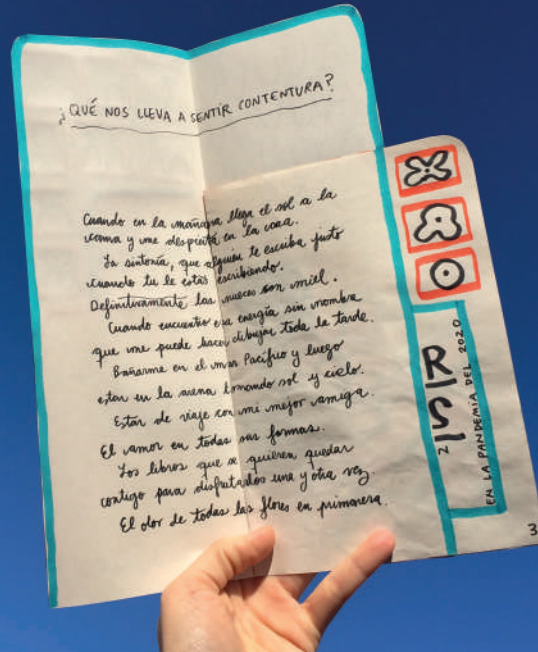 ¿QUÉ NOS LLEVA A SENTIR CONTENTURA?
Cuando en la mañana llega el sol a la
cama y me despierta en la cara.
La sintonía, que alguien te escriba justo
cuando tu le estás escribiendo.
Definitivamente las nueces con miel.
Cuando encuentro esa energía sin nombre
que me puede hacer dibujar toda la tarde.
Bañarme en el mar Pacífico y luego
estar en la arena tomando sol y cielo.
Estar de viaje con mi mejor amiga.
El amor en todas sus formas.
Los libros que se quieren quedar
contigo para disfrutarlos una y otra vez.
El olor de todas las flores en primavera.
RIS
2
EN LA PANDEMIA DEL 2020
3